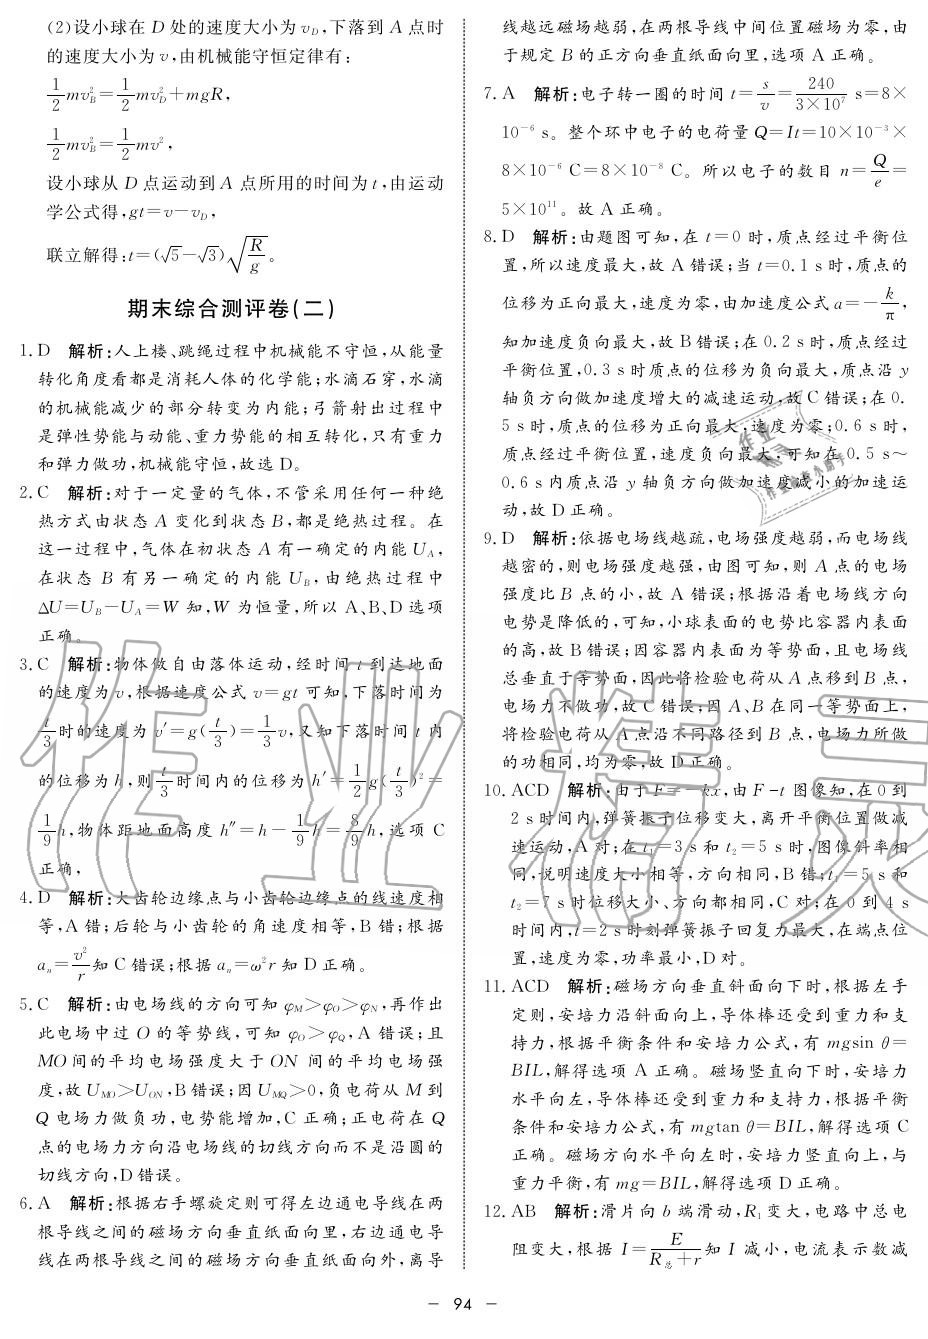 (2)设小球在 D 处的速度大小为 v_D,下落到 A 点时
的速度大小为 v,由机械能守恒定律有:
1/2 mv_B²=1/2 mv_D²+mgR,
1/2 mv_B²=1/2 mv²,
设小球从 D 点运动到 A 点所用的时间为 t,由运动
学公式得,gt=v-v_D,
联立解得:t=(√5-√3)√(R/g)。
期末综合测评卷(二)
1. D 解析:人上楼、跳绳过程中机械能不守恒,从能量
转化角度看都是消耗人体的化学能;水滴石穿,水滴
的机械能减少的部分转变为内能;弓箭射出过程中
是弹性势能与动能、重力势能的相互转化,只有重力
和弹力做功,机械能守恒,故选 D。
2. C 解析:对于一定量的气体,不管采用任何一种绝
热方式由状态 A 变化到状态 B,都是绝热过程。在
这一过程中,气体在初状态 A 有一确定的内能 U_A,
在状态 B 有另一确定的内能 U_B,由绝热过程中
ΔU=U_B-U_A=W 知,W 为恒量,所以 A、B、D 选项
正确。
3. C 解析:物体做自由落体运动,经时间 t 到达地面
的速度为 v,根据速度公式 v=gt 可知,下落时间为
t/3时的速度为 v′=g(t/3)=1/3 v,又知下落时间 t 内
的位移为 h,则t/3时间内的位移为 h′=1/2 g(t/3)²=
1/9 h,物体距地面高度 h″=h-1/9 h=8/9 h,选项 C
正确,
4. D 解析:大齿轮边缘点与小齿轮边缘点的线速度相
等,A 错;后轮与小齿轮的角速度相等,B 错;根据
a_n=v²/r知 C 错误;根据 a_n=ω²r 知 D 正确。
5. C 解析:由电场线的方向可知 φ_M>φ_O>φ_N,再作出
此电场中过 O 的等势线,可知 φ_O>φ_Q,A 错误;且
MO 间的平均电场强度大于 ON 间的平均电场强
度,故 U_MO>U_ON,B 错误;因 U_MQ>0,负电荷从 M 到
Q 电场力做负功,电势能增加,C 正确;正电荷在 Q
点的电场力方向沿电场线的切线方向而不是沿圆的
切线方向,D 错误。
6. A 解析:根据右手螺旋定则可得左边通电导线在两
根导线之间的磁场方向垂直纸面向里,右边通电导
线在两根导线之间的磁场方向垂直纸面向外,离导
线越远磁场越弱,在两根导线中间位置磁场为零,由
于规定 B 的正方向垂直纸面向里,选项 A 正确。
7. A 解析:电子转一圈的时间 t=s/v=240/(3×10⁷) s=8×
10⁻⁶ s。整个环中电子的电荷量 Q=It=10×10⁻³×
8×10⁻⁶ C=8×10⁻⁸ C。所以电子的数目 n=Q/e=
5×10¹¹。故 A 正确。
8. D 解析:由题图可知,在 t=0 时,质点经过平衡位
置,所以速度最大,故 A 错误;当 t=0.1 s 时,质点的
位移为正向最大,速度为零,由加速度公式 a=-k/π,
知加速度负向最大,故 B 错误;在 0.2 s 时,质点经过
平衡位置,0.3 s 时质点的位移为负向最大,质点沿 y
轴负方向做加速度增大的减速运动,故 C 错误;在 0.
5 s 时,质点的位移为正向最大,速度为零;0.6 s 时,
质点经过平衡位置,速度负向最大,可知在 0.5 s~
0.6 s 内质点沿 y 轴负方向做加速度减小的加速运
动,故 D 正确。
9. D 解析:依据电场线越疏,电场强度越弱,而电场线
越密的,则电场强度越强,由图可知,则 A 点的电场
强度比 B 点的小,故 A 错误;根据沿着电场线方向
电势是降低的,可知,小球表面的电势比容器内表面
的高,故 B 错误;因容器内表面为等势面,且电场线
总垂直于等势面,因此将检验电荷从 A 点移到 B 点,
电场力不做功,故 C 错误;因 A、B 在同一等势面上,
将检验电荷从 A 点沿不同路径到 B 点,电场力所做
的功相同,均为零,故 D 正确。
10. ACD 解析:由于 F=-kx,由 F-t 图像知,在 0 到
2 s 时间内,弹簧振子位移变大,离开平衡位置做减
速运动,A 对;在 t₁=3 s 和 t₂=5 s 时,图像斜率相
同,说明速度大小相等,方向相同,B 错;t₁=5 s 和
t₂=7 s 时位移大小、方向都相同,C 对;在 0 到 4 s
时间内,t=2 s 时刻弹簧振子回复力最大,在端点位
置,速度为零,功率最小,D 对。
11. ACD 解析:磁场方向垂直斜面向下时,根据左手
定则,安培力沿斜面向上,导体棒还受到重力和支
持力,根据平衡条件和安培力公式,有 mgsin θ=
BIL,解得选项 A 正确。磁场竖直向下时,安培力
水平向左,导体棒还受到重力和支持力,根据平衡
条件和安培力公式,有 mgtan θ=BIL,解得选项 C
正确。磁场方向水平向左时,安培力竖直向上,与
重力平衡,有 mg=BIL,解得选项 D 正确。
12. AB 解析:滑片向 b 端滑动,R₁ 变大,电路中总电
阻变大,根据 I=E/(R_总+r)知 I 减小,电流表示数减
- 94 -
作业精灵